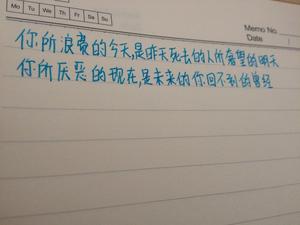 Mo Tu We Th Fr Sa Su
Memo No.
Date
你所浪费的今天,是昨天死去的人所奢望的明天
你所厌恶的现在,是未来的你回不到的曾经